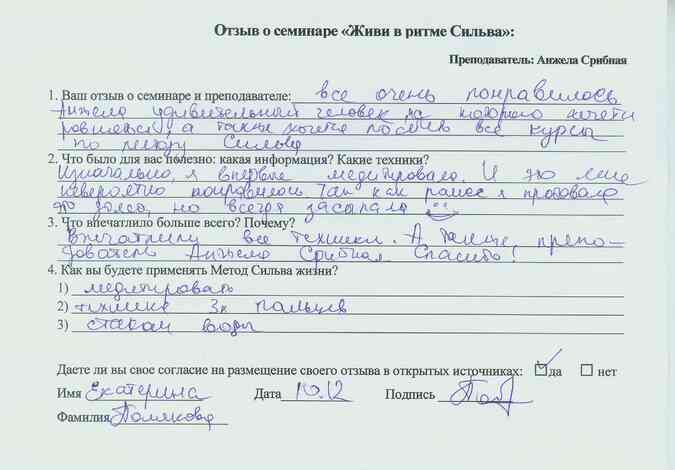 Отзыв о семинаре «Живи в ритме Сильва»:
Преподаватель: Анжела Срибная
1. Ваш отзыв о семинаре и преподавателе: все очень понравилось
Анжела удивительный человек на которого хочется
ровняться, а также хочется посетить все курсы
по методу Сильва
2. Что было для вас полезно: какая информация? Какие техники?
Изначально, я впервые медитировала. И это мне
невероятно понравилось Так как ранее я пробовала
это дома, но всегда засыпала
3. Что впечатлило больше всего? Почему?
Впечатлили все техники. А также, препо-
даватель Анжела Срибная. Спасибо!
4. Как вы будете применять Метод Сильва жизни?
1) медитировать
2) технике 3х пальцев
3) стакан воды
Даете ли вы свое согласие на размещение своего отзыва в открытых источниках: да нет
Имя Екатерина Дата 10.12 Подпись
Фамилия Полякова